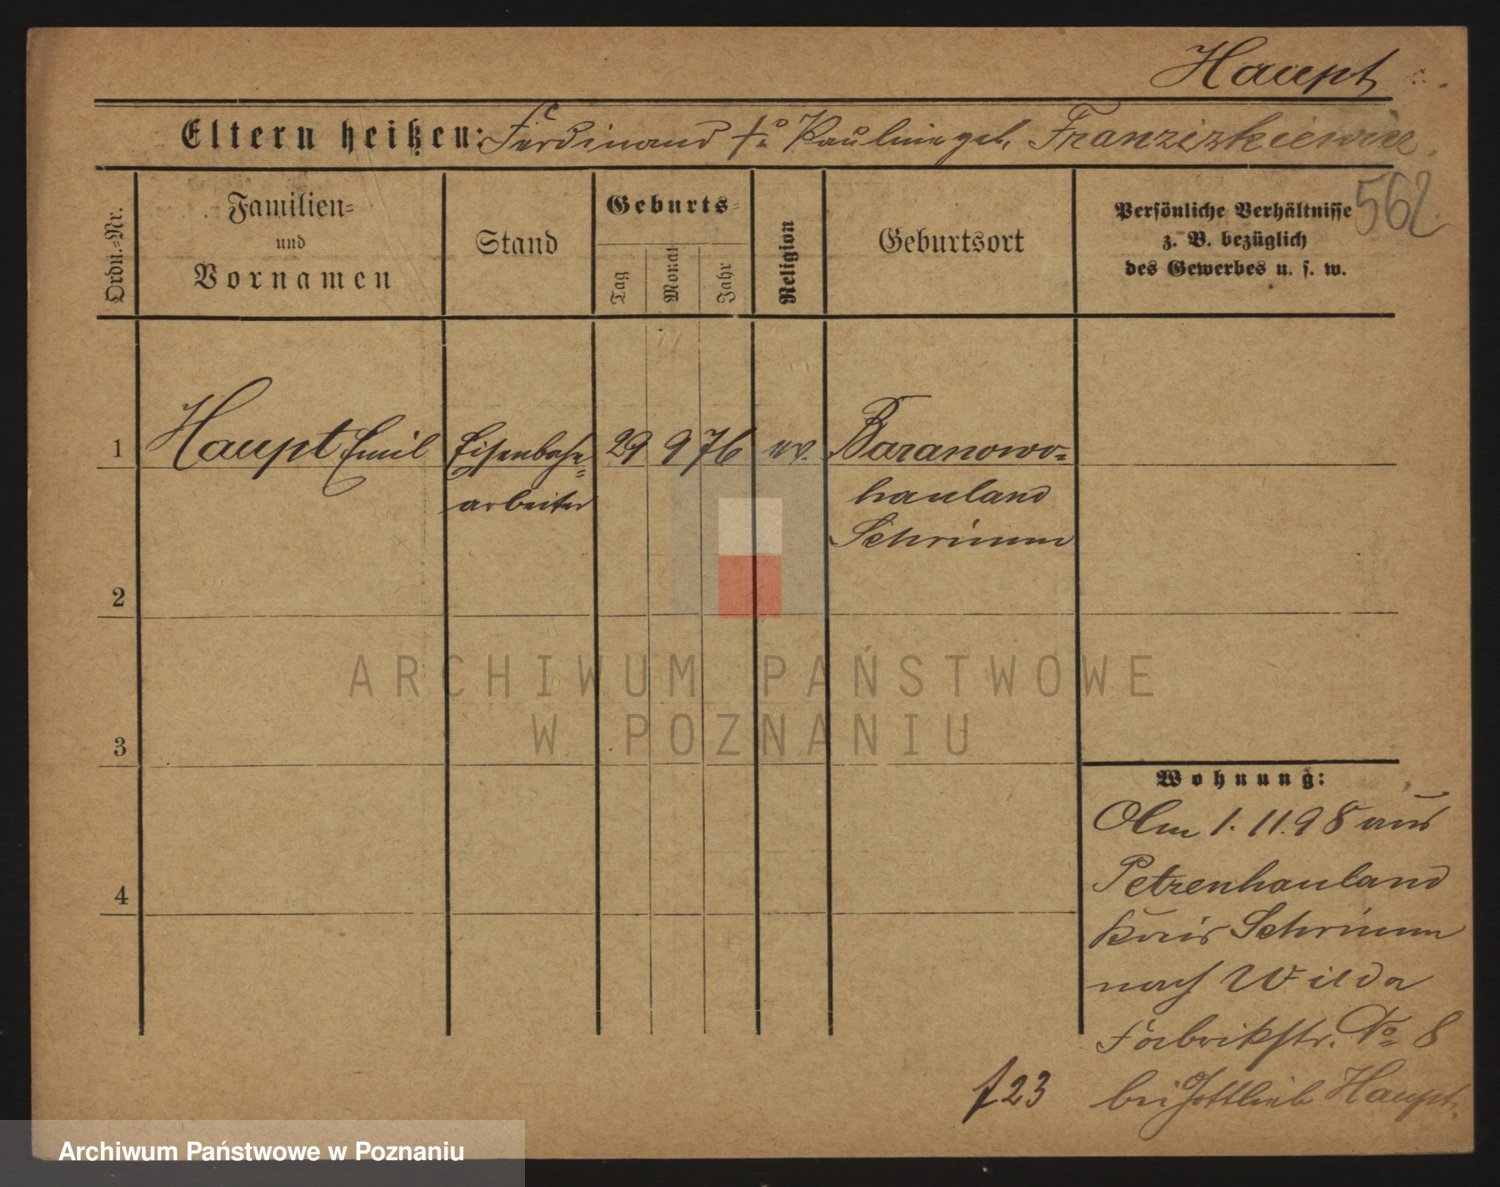 Haupt
Eltern heißen: Ferdinand Pauline geb. Franziszkiewicz
562
Ordn.-Nr.
Familien- und Vornamen
Stand
Geburts-
Tag
Monat
Jahr
Religion
Geburtsort
Persönliche Verhältnisse
z. B. bezüglich
des Gewerbes u. s. w.
1 Haupt Emil Eisenbahn= 29 9 76 ev. Baranowo=
arbeiter hauland
Schrimm
2
3
4
Wohnung:
Am 1.11.98 aus
Petzenhauland
Kreis Schrimm
nach Wilda
Fabrikstr. No 8
bei Gottlieb Haupt.
f 23
ARCHIWUM PAŃSTWOWE
W POZNANIU
Archiwum Państwowe w Poznaniu